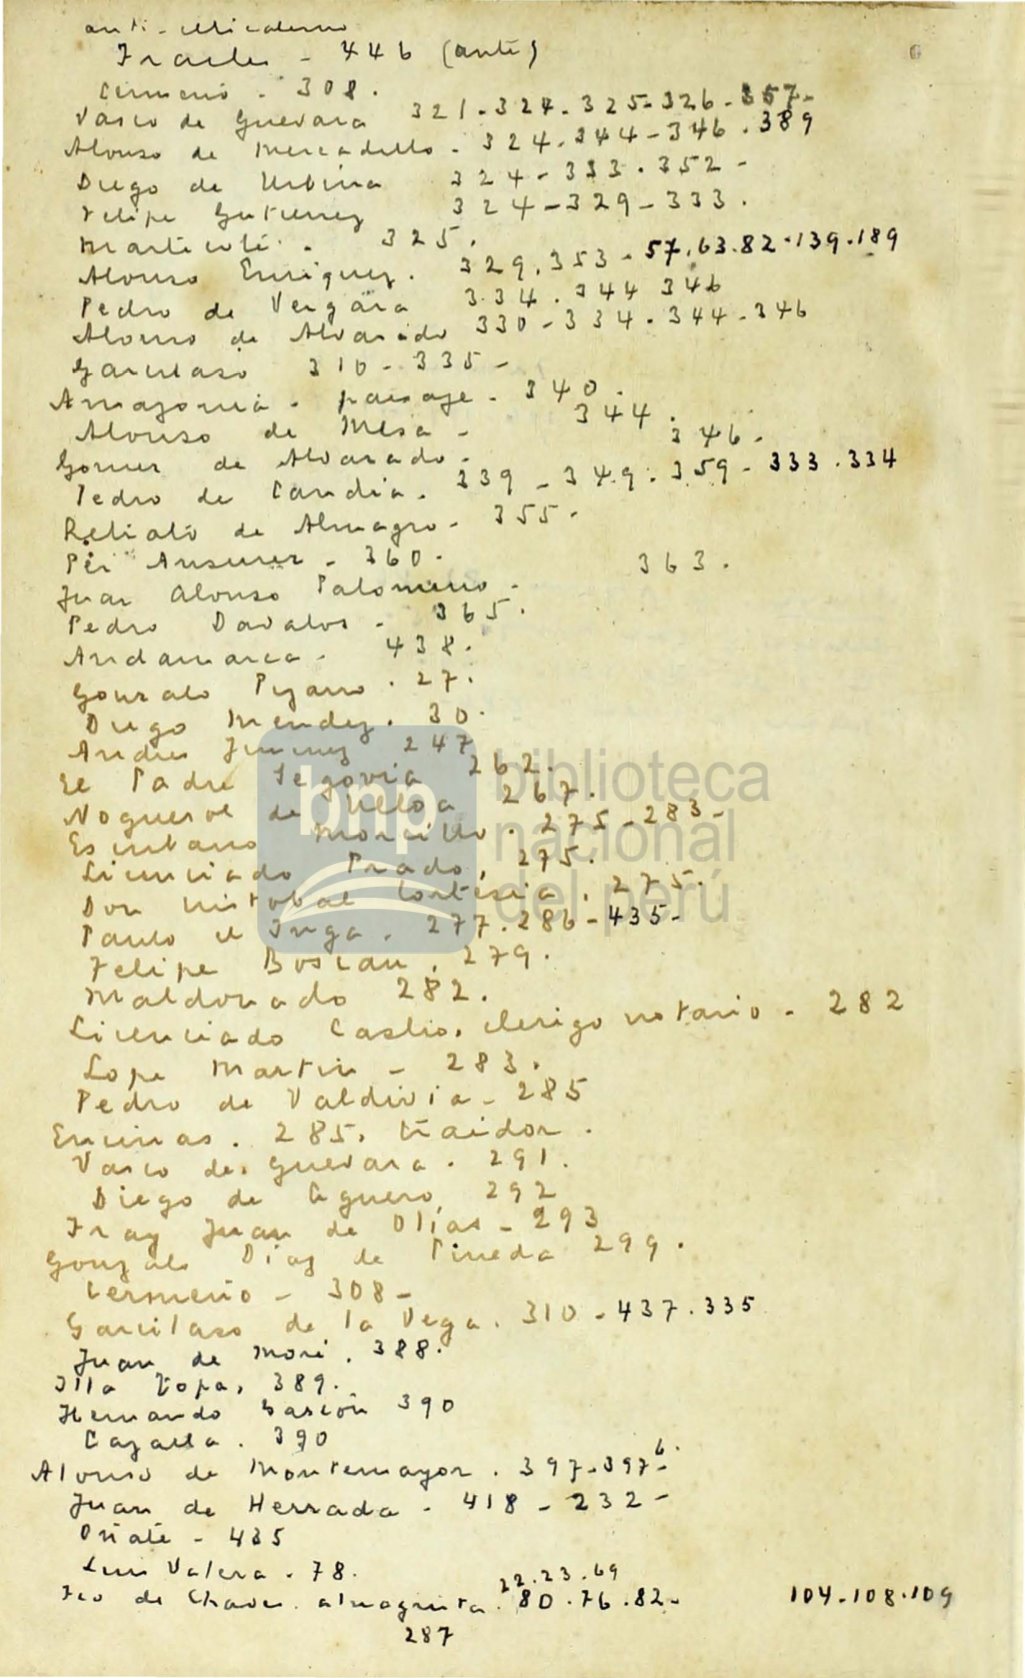 anti-
Frailes - 446 (ante)
Cermeño - 308.
Vasco de Guevara 321-324-325-326-357-
Alonso de Mercadillo - 324-344-346.389
Diego de Urbina 324-333.352-
Felipe Gutierrez 324-329-333.
325.
Alonso Enriquez. 329.353-57.63.82-139.189
Pedro de Vergara 334.344 346
Alonso de Alvarado 330-334.344-346
Garcilaso 310-335-
Amazonia - paisaje - 340.
Alonso de Mesa - 344.
Gomez de Alvarado - 346-
Pedro de Candia. 339-349.359-333.334
de Almagro - 355-
Per Ansurez - 360.
Juan Alonso Palomino - 363.
Pedro Davalos - 365.
Andamarca - 438.
Gonzalo Pizarro . 27.
Diego Mendez. 30.
Andres Jimenez 247
El Padre Segovia 262.
Noguerol de Ulloa 267.
Escribano Morcillo. 275-283-
Licenciado Prado, 275.
Don Cristobal . 275.
Paulo el Inga. 277.286-435-
Felipe Boscan. 279.
Maldonado 282.
Licenciado Castro, clerigo notario - 282
Lope Martin - 283.
Pedro de Valdivia - 285
Encinas. 285, traidor.
Vasco de Guevara. 291.
Diego de Aguero, 292
Fray Juan de Olias - 293
Gonzalo Diaz de Pineda 299.
Cermeño - 308-
Garcilaso de la Vega. 310-437.335
Juan de Mori. 388.
Illa Topa, 389.
Hernando Bascón 390
Cazalla. 390
Alonso de Montemayor. 397-397 6.-
Juan de Herrada - 418-232-
Oñate - 435
Luis Valera. 78.
22.23.69
Fco de Chaves. almagrista. 80.76.82- 104-108.109
287
bnp biblioteca nacional del perú